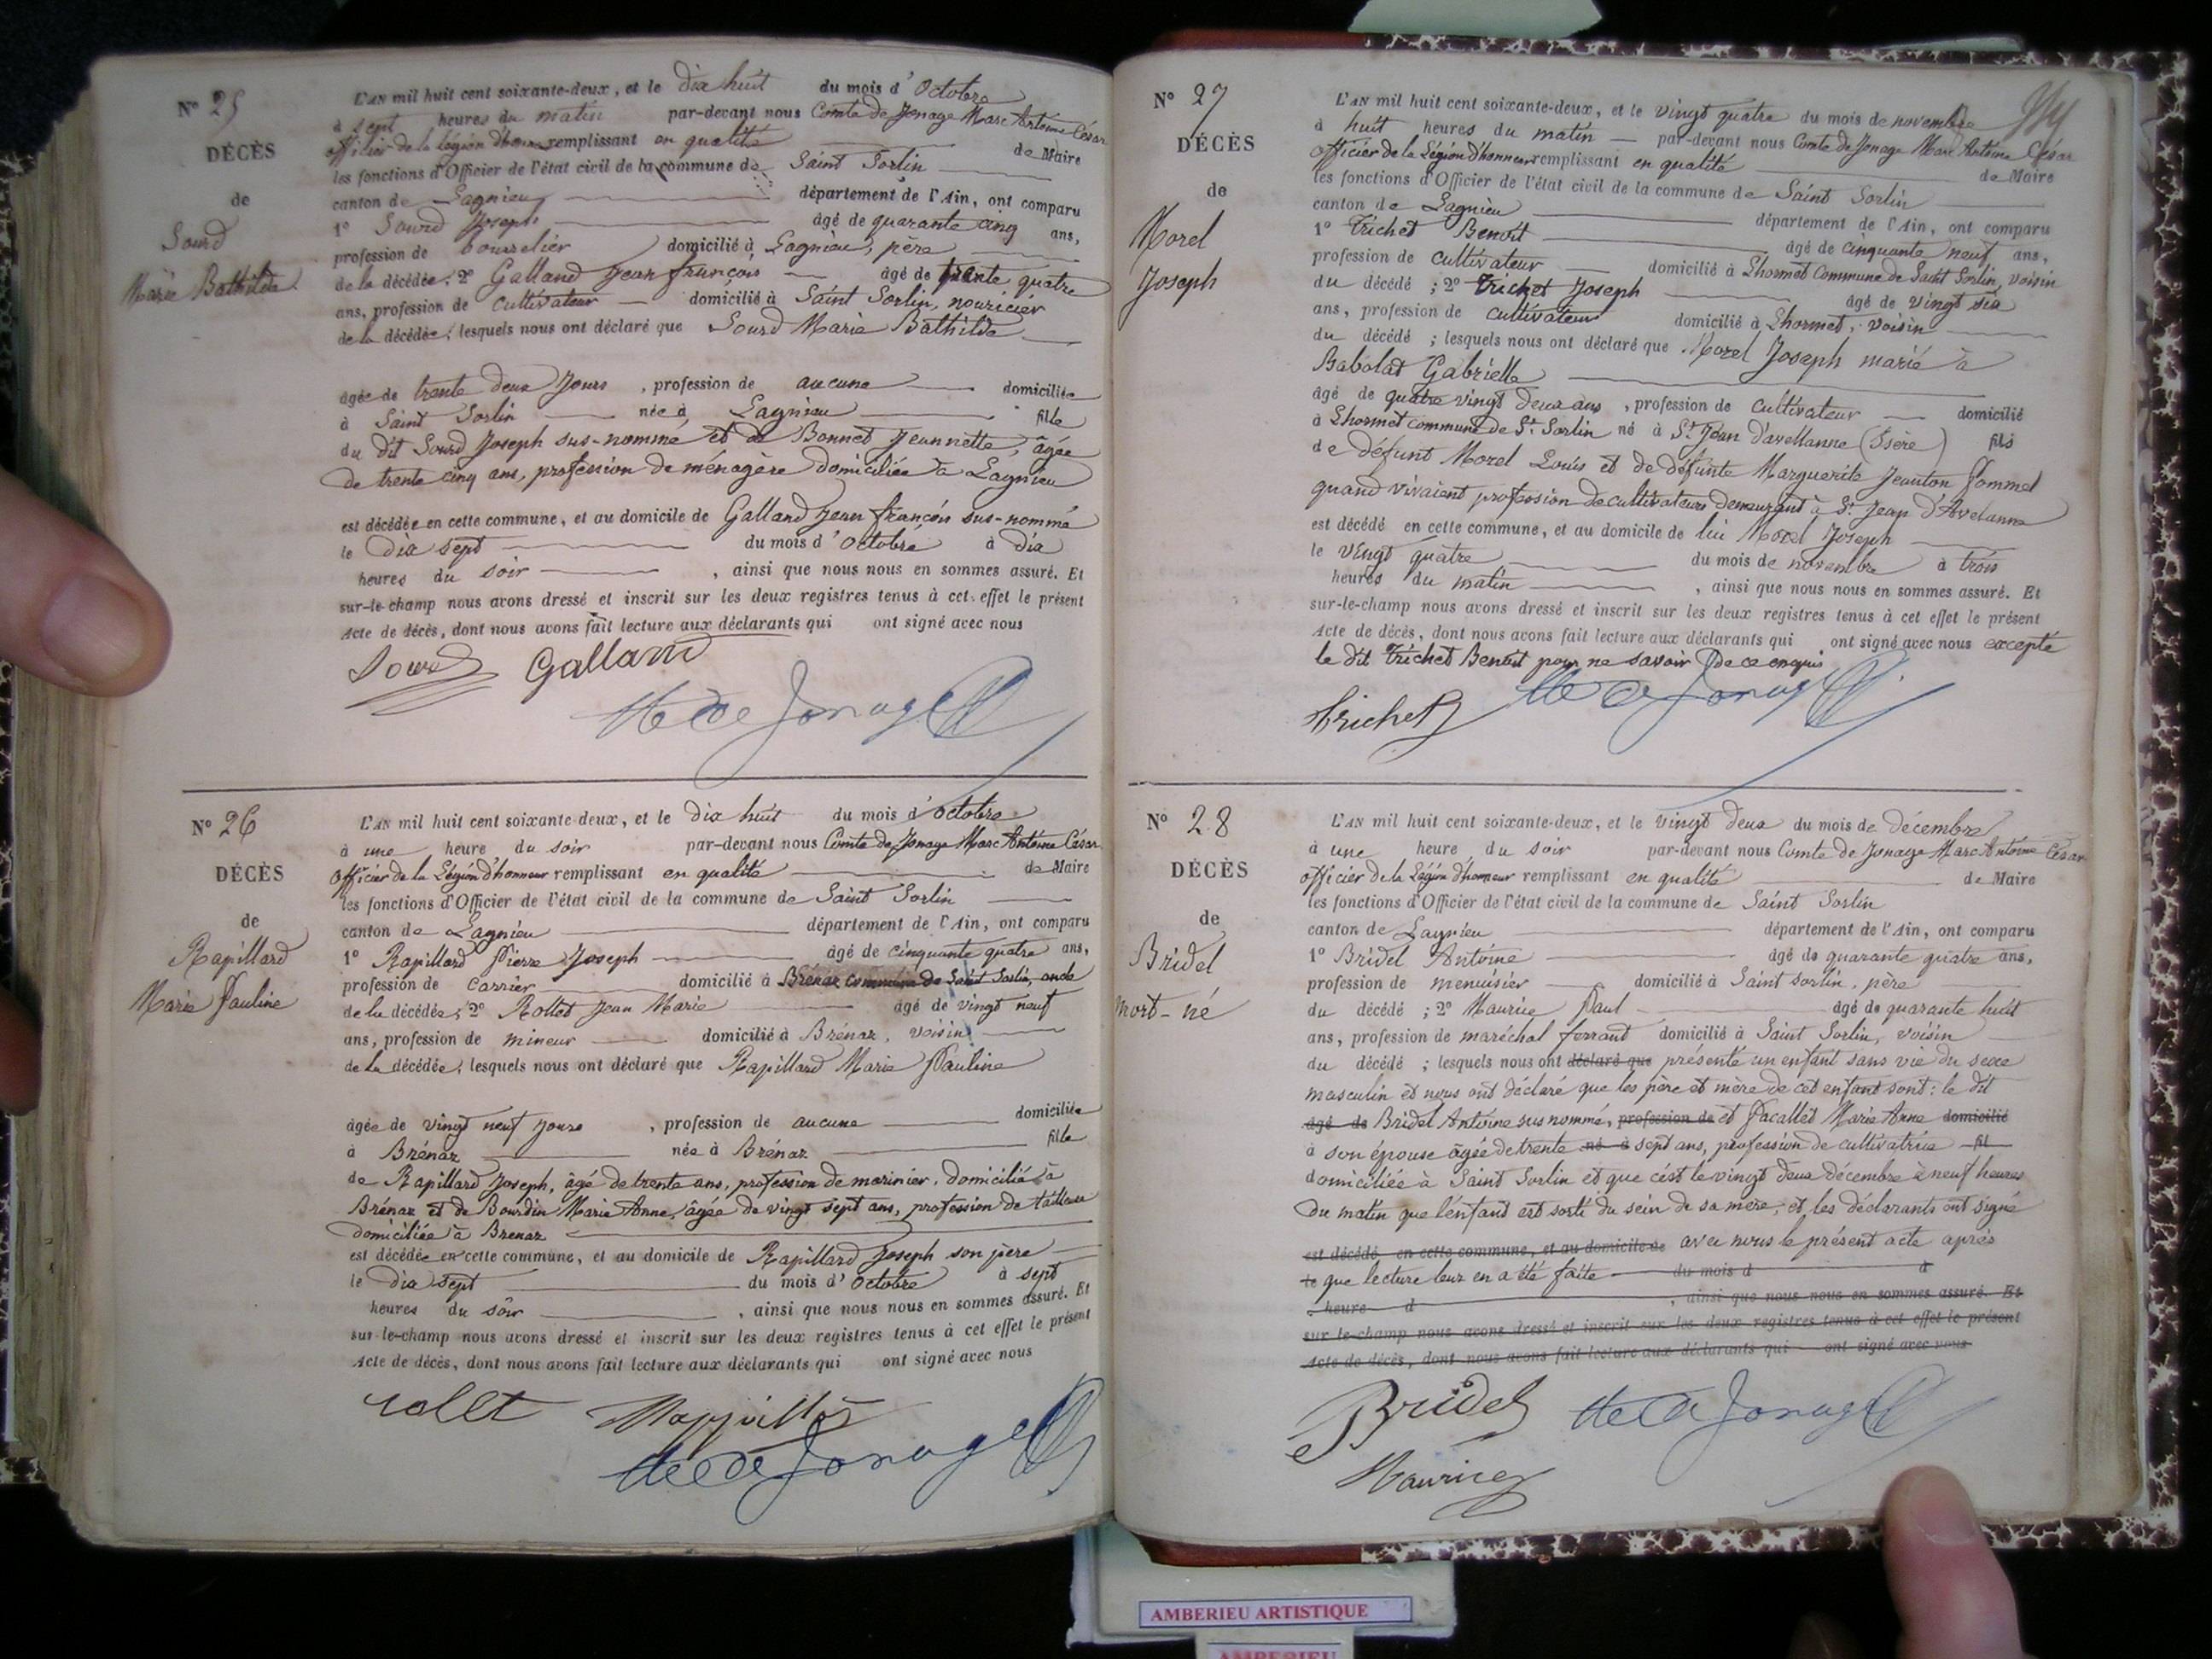 N° 25
DÉCÈS
de
Sourd
Marie Bathilde
L'AN mil huit cent soixante-deux, et le dix huit du mois d'Octobre
à sept heures du matin par-devant nous Comte de Jonage Marc Antoine César
officier de la légion d'honneur remplissant en qualité de Maire
les fonctions d'Officier de l'état civil de la commune de Saint Sorlin
canton de Lagnieu département de l'Ain, ont comparu
1° Sourd Joseph âgé de quarante cinq ans,
profession de bourrelier domicilié à Lagnieu, père
de la décédée; 2° Galland Jean françois âgé de trente quatre
ans, profession de cultivateur domicilié à Saint Sorlin, nouricier
de la décédée; lesquels nous ont déclaré que Sourd Marie Bathilde
âgée de trente deux Jours, profession de aucune domiciliée
à Saint Sorlin née à Lagnieu fille
du dit Sourd Joseph sus-nommé et de Bonnet Jeannette, âgée
de trente cinq ans, profession de ménagère domiciliée à Lagnieu
est décédée en cette commune, et au domicile de Galland Jean françois sus-nommé
le dix sept du mois d'Octobre à dix
heures du soir, ainsi que nous nous en sommes assuré. Et
sur-le-champ nous avons dressé et inscrit sur les deux registres tenus à cet effet le présent
Acte de décès, dont nous avons fait lecture aux déclarants qui ont signé avec nous
Sourd Galland
de Jonage
N° 26
DÉCÈS
de
Rapillard
Marie Pauline
L'AN mil huit cent soixante-deux, et le dix huit du mois d'Octobre
à une heure du soir par-devant nous Comte de Jonage Marc Antoine César
Officier de la Légion d'honneur remplissant en qualité de Maire
les fonctions d'Officier de l'état civil de la commune de Saint Sorlin
canton de Lagnieu département de l'Ain, ont comparu
1° Rapillard Pierre Joseph âgé de cinquante quatre ans,
profession de Carrier domicilié à Brénaz commune de Saint Sorlin, oncle
de la décédée; 2° Rollet Jean Marie âgé de vingt neuf
ans, profession de mineur domicilié à Brénaz, voisin
de la décédée; lesquels nous ont déclaré que Rapillard Marie Pauline
âgée de vingt neuf jours, profession de aucune domiciliée
à Brénaz née à Brénaz fille
de Rapillard Joseph, âgé de trente ans, profession de marinier, domicilié à
Brénaz et de Bourdin Marie Anne, âgée de vingt sept ans, profession de tailleuse
domiciliée à Brenaz
est décédée en cette commune, et au domicile de Rapillard Joseph son père
le dix sept du mois d'Octobre à sept
heures du soir, ainsi que nous nous en sommes assuré. Et
sur-le-champ nous avons dressé et inscrit sur les deux registres tenus à cet effet le présent
Acte de décès, dont nous avons fait lecture aux déclarants qui ont signé avec nous
rollet
de Jonage
N° 27
DÉCÈS
de
Morel
Joseph
L'AN mil huit cent soixante-deux, et le vingt quatre du mois de novembre
à huit heures du matin par-devant nous Comte de Jonage Marc Antoine César
Officier de la Légion d'honneur remplissant en qualité de Maire
les fonctions d'Officier de l'état civil de la commune de Saint Sorlin
canton de Lagnieu département de l'Ain, ont comparu
1° Trichet Benoit âgé de cinquante neuf ans,
profession de cultivateur domicilié à Lhormet Commune de Saint Sorlin, voisin
du décédé; 2° Trichet Joseph âgé de vingt six
ans, profession de cultivateur domicilié à Lhormet, voisin
du décédé; lesquels nous ont déclaré que Morel Joseph marié à
Babolat Gabrielle
âgé de quatre vingt deux ans, profession de Cultivateur domicilié
à Lhormet commune de St Sorlin né à St Jean d'avellanne (Isère) fils
de défunt Morel Louis et de défunte Marguerite Jeanton Pommel
quand vivaient profession de cultivateurs demeurant à St Jean d'Avelanne
est décédé en cette commune, et au domicile de lui Morel Joseph
le vingt quatre du mois de novembre à trois
heures du matin, ainsi que nous nous en sommes assuré. Et
sur-le-champ nous avons dressé et inscrit sur les deux registres tenus à cet effet le présent
Acte de décès, dont nous avons fait lecture aux déclarants qui ont signé avec nous excepté
le dit Trichet Benoit pour ne savoir de ce enquis
trichet de Jonage
N° 28
DÉCÈS
de
Bridel
mort-né
L'AN mil huit cent soixante-deux, et le vingt deux du mois de décembre
à une heure du soir par-devant nous Comte de Jonage Marc Antoine César
officier de la Légion d'honneur remplissant en qualité de Maire
les fonctions d'Officier de l'état civil de la commune de Saint Sorlin
canton de Lagnieu département de l'Ain, ont comparu
1° Bridel Antoine âgé de quarante quatre ans,
profession de menuisier domicilié à Saint Sorlin, père
du décédé; 2° Maurice Paul âgé de quarante huit
ans, profession de maréchal ferrant domicilié à Saint Sorlin, voisin
du décédé; lesquels nous ont déclaré que présenté un enfant sans vie du sexe
masculin et nous ont déclaré que les père et mère de cet enfant sont: le dit
âgé de Bridel Antoine sus nommé, profession de et Pacallet Marie Anne domicilié
à son épouse âgée de trente né à sept ans, profession de cultivatrice fil
domiciliée à Saint Sorlin et que c'est le vingt deux décembre à neuf heures
du matin que l'enfant est sorti du sein de sa mère, et les déclarants ont signé
est décédé en cette commune, et au domicile de avec nous le présent acte après
le que lecture leur en a été faite du mois d à
heure d, ainsi que nous nous en sommes assuré. Et
sur-le-champ nous avons dressé et inscrit sur les deux registres tenus à cet effet le présent
Acte de décès, dont nous avons fait lecture aux déclarants qui ont signé avec nous
Bridel de Jonage
Maurice
AMBERIEU ARTISTIQUE
AMBERIEU